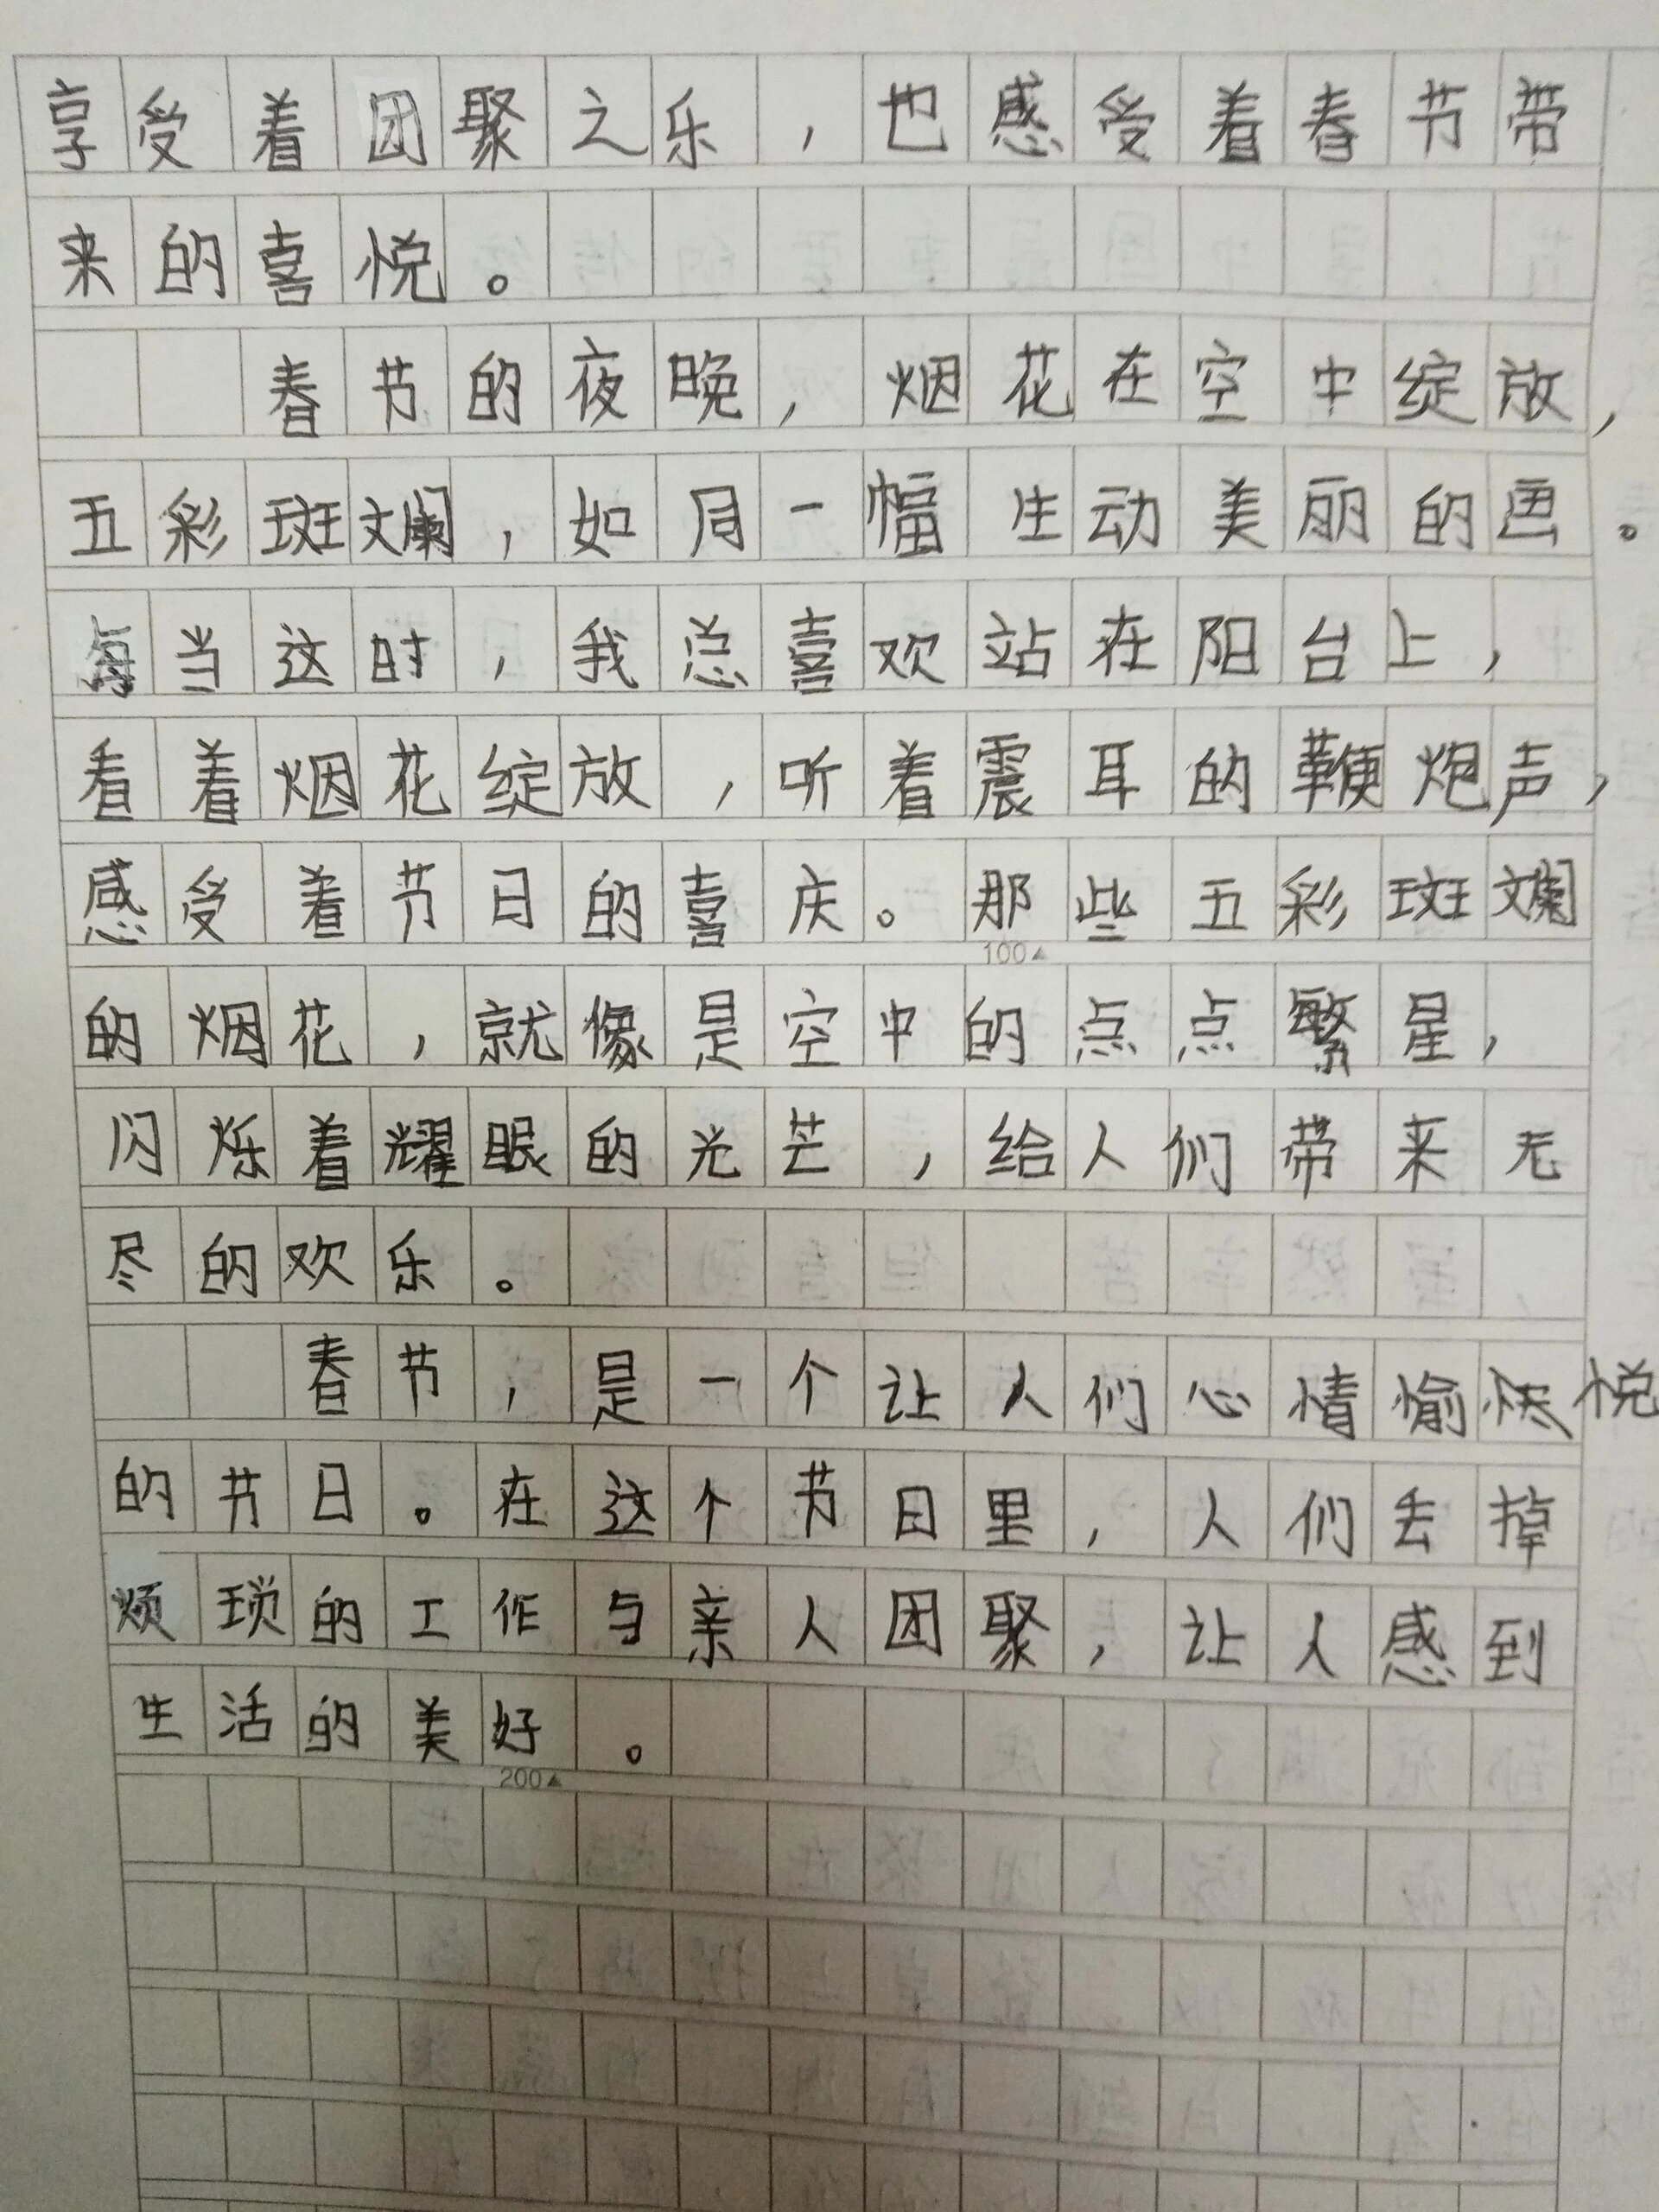 享受着团聚之乐，也感受着春节带
来的喜悦。
春节的夜晚，烟花在空中绽放，
五彩斑斓，如同一幅生动美丽的画。
每当这时，我总喜欢站在阳台上，
看着烟花绽放，听着震耳的鞭炮声，
感受着节日的喜庆。那些五彩斑斓
100▲
的烟花，就像是空中的点点繁星，
闪烁着耀眼的光芒，给人们带来无
尽的欢乐。
春节，是一个让人们心情愉悦
的节日。在这个节日里，人们丢掉
烦琐的工作与亲人团聚，让人感到
生活的美好。
200▲